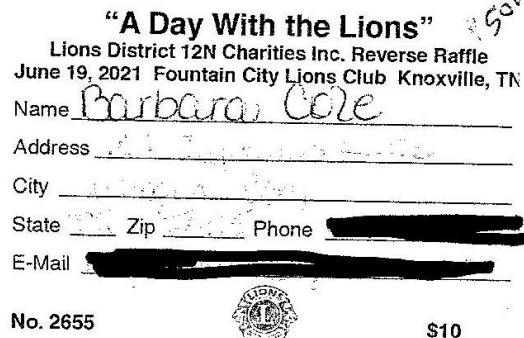 "A Day With the Lions"
Lions District 12N Charities Inc. Reverse Raffle
June 19, 2021 Fountain City Lions Club Knoxville, TN
Name Barbara Cole
Address
City
State Zip Phone
E-Mail
LIONS
No. 2655
$10